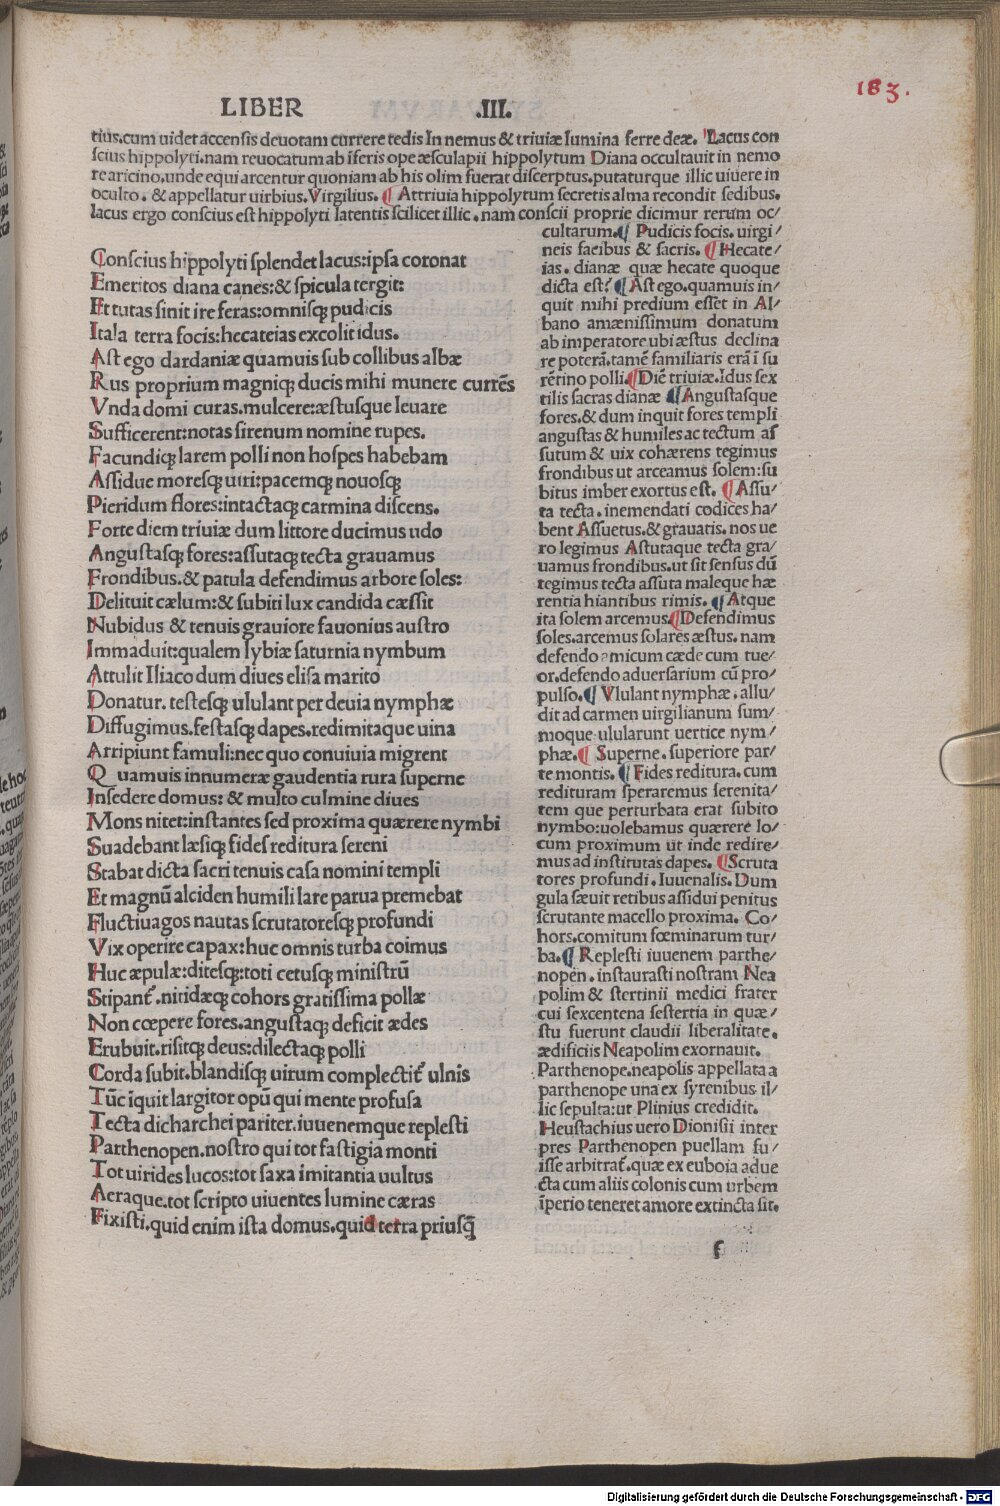 LIBER .III.
183.
tius.cum uidet accensis deuotam currere tedis In nemus & triuiæ lumina ferre deæ. Lacus con
scius hippolyti.nam reuocatum ab iferis ope æsculapii hippolytum Diana occultauit in nemo
re aricino.unde equi arcentur quoniam ab his olim fuerat discerptus.putaturque illic uiuere in
oculto. & appellatur uirbius.Virgilius. ¶ Attriuia hippolytum secretis alma recondit sedibus.
lacus ergo conscius est hippolyti latentis scilicet illic. nam conscii proprie dicimur rerum oc/
Conscius hippolyti splendet lacus:ipsa coronat
Emeritos diana canes:& spicula tergit:
Et tutas sinit ire feras:omnisq; pudicis
Itala terra focis:hecateias excolit idus.
Ast ego dardaniæ quamuis sub collibus albæ
Rus proprium magniq; ducis mihi munere currēs
Vnda domi curas.mulcere:æstusque leuare
Sufficerent:notas sirenum nomine rupes.
Facundiq; larem polli non hospes habebam
Assidue moresq; uiri:pacemq; nouosq;
Pieridum flores:intactaq; carmina discens.
Forte diem triuiæ dum littore ducimus udo
Angustasq; fores:assutaq; tecta grauamus
Frondibus.& patula defendimus arbore soles:
Delituit cælum:& subiti lux candida cæssit
Nubidus & tenuis grauiore fauonius austro
Immaduit:qualem lybiæ saturnia nymbum
Attulit Iliaco dum diues elisa marito
Donatur. testesq; ululant per deuia nymphæ
Diffugimus.festasq; dapes.redimitaque uina
Arripiunt famuli:nec quo conuiuia migrent
Q uamuis innumeræ gaudentia rura superne
Insedere domus: & multo culmine diues
Mons nitet:instantes sed proxima quærere nymbi
Suadebant læsiq; fides reditura sereni
Stabat dicta sacri tenuis casa nomini templi
Et magnū alciden humili lare parua premebat
Fluctiuagos nautas scrutatoresq; profundi
Vix operire capax:huc omnis turba coimus
Huc æpulæ:ditesq;:toti cetusq; ministrū
Stipant̄.nitidæq; cohors gratissima pollæ
Non cœpere fores.angustaq; deficit ædes
Erubuit.risitq; deus:dilectaq; polli
Corda subit.blandisq; uirum complectit̄ ulnis
Tūc iquit largitor opū qui mente profusa
Tecta dicharchei pariter.iuuenemque replesti
Parthenopen.nostro qui tot fastigia monti
Tot uirides lucos:tot saxa imitantia uultus
Aeraque.tot scripto uiuentes lumine cæras
Fixisti.quid enim ista domus.quid terra priusq̄
cultarum.¶ Pudicis focis. uirgi/
neis facibus & sacris. ¶ Hecate/
ias. dianæ quæ hecate quoque
dicta est? ¶ Ast ego.quamuis in/
quit mihi predium esset in Al/
bano amænissimum donatum
ab imperatore ubi æstus declina
re poterā.tamē familiaris erā ī su
rētino polli.¶ Diē triuiæ.Idus sex
tilis sacras dianæ ¶ Angustasque
fores.& dum inquit fores templi
angustas & humiles ac tectum as
sutum & uix cohærens tegimus
frondibus ut arceamus solem:su
bitus imber exortus est. ¶ Assu/
ta tecta. inemendati codices ha/
bent Assuetus.& grauatis. nos ue
ro legimus Astutaque tecta gra/
uamus frondibus.ut sit sensus dū
tegimus tecta assuta maleque hæ
rentia hiantibus rimis. ¶ Atque
ita solem arcemus.¶ Defendimus
soles.arcemus solares æstus. nam
defendo amicum cæde cum tue/
or.defendo aduersarium cū pro/
pulso.¶ Vlulant nymphæ. allu/
dit ad carmen uirgilianum sum/
moque ulularunt uertice nym/
phæ.¶ Superne. superiore par/
te montis. ¶ Fides reditura. cum
redituram speraremus serenita/
tem que perturbata erat subito
nymbo:uolebamus quærere lo/
cum proximum ut inde redire/
mus ad institutas dapes. ¶ Scruta
tores profundi. Iuuenalis. Dum
gula sæuit retibus assidui penitus
scrutante macello proxima. Co/
hors.comitum fœminarum tur/
ba.¶ Replesti iuuenem parthe/
nopen. instaurasti nostram Nea
polim & stertinii medici frater
cui sexcentena sestertia in quæ/
stu fuerunt claudii liberalitate.
ædificiis Neapolim exornauit.
Parthenope.neapolis appellata a
parthenope una ex syrenibus il/
lic sepulta:ut Plinius credidit.
Heustachius uero Dionisii inter
pres Parthenopen puellam fu/
isse arbitrat̄.quæ ex euboia adue
cta cum aliis colonis cum urbem
īperio teneret amore extincta sit.
f
Digitalisierung gefördert durch die Deutsche Forschungsgemeinschaft - DFG